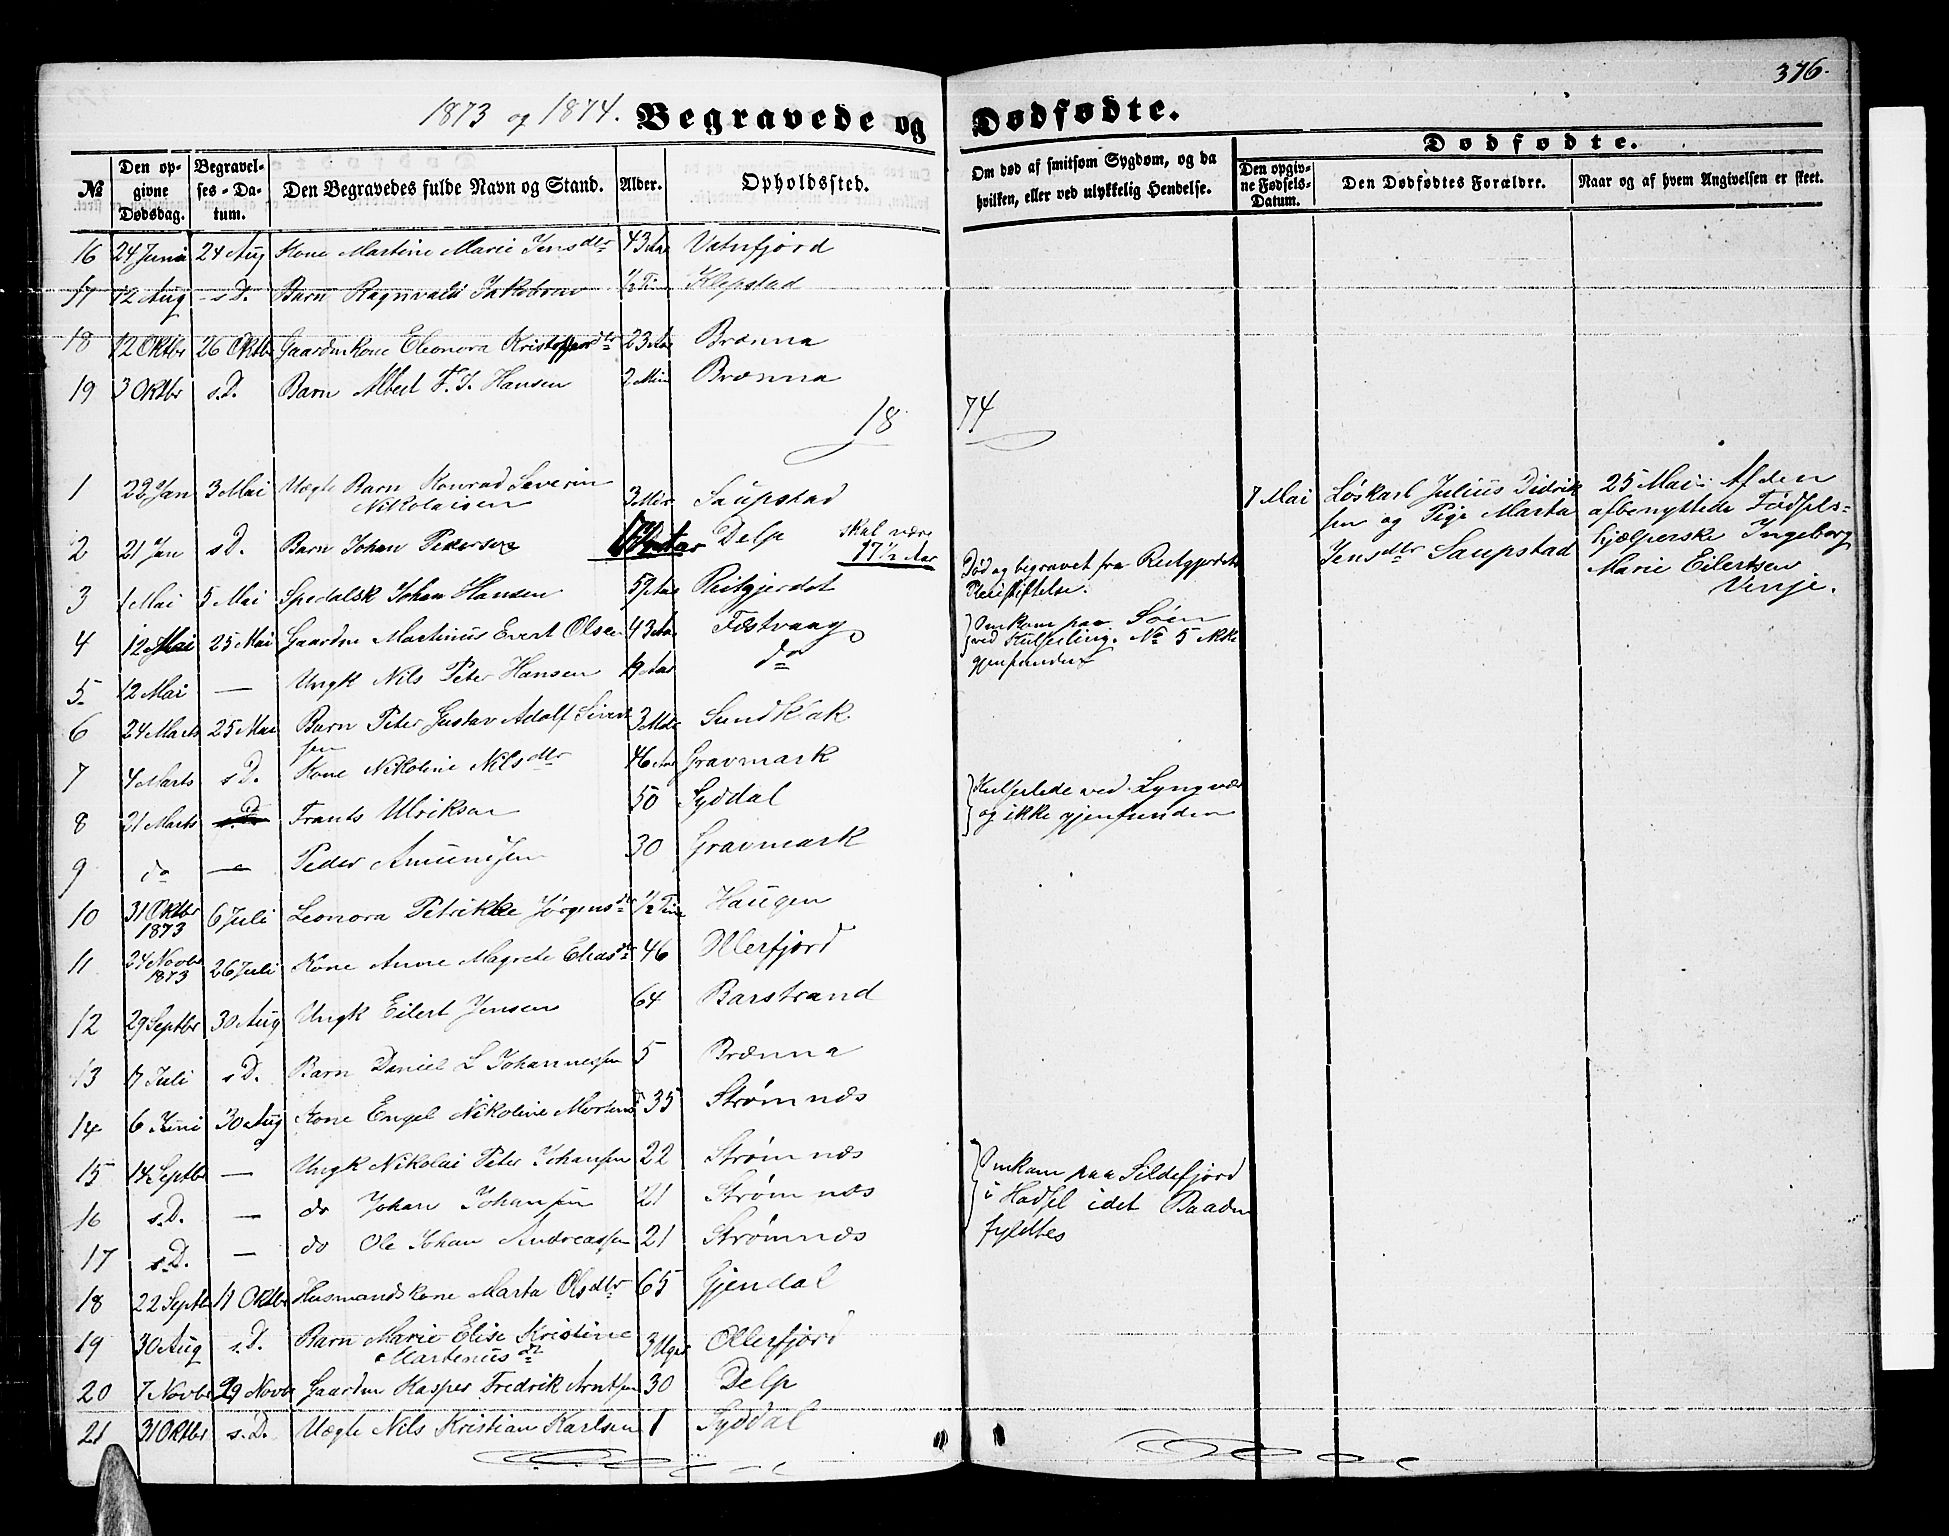 376.
1873 og 1874. Begravede og Dødfødte.
№
Den opgivne Dødsdag.
Begravelses-Datum.
Den Begravedes fulde Navn og Stand.
Alder.
Opholdssted.
Om død af smitsom Sygdom, og da hvilken, eller ved ulykkelig Hendelse.
Dødfødte.
Den opgivne Fødsels-Datum.
Den Dødfødtes Forældre.
Naar og af hvem Angivelsen er skeet.
16 24 Juni 24 Aug Kone Martine Marie Jensdtr 43 Aar Vatnfjord
17 12 Aug s.D. Barn Ragnvald Jakobsen 1/2 Time Klepstad
18 12 Oktbr 26 Oktbr Gaardmkone Eleonora Kristoffersdtr 23 Aar Brænna
19 3 Oktbr s.D. Barn Albert F. J. Hansen 2 Min Brænna
18 74
1 22 Jan 3 Mai Uægte Barn Konrad Severin
Nikolaisen 3 Mdr Saupstad
2 21 Jan s.D. Barn Johan Pedersen Delp skal være
17 1/2 Aar
3 1 Mai 5 Mai Spedalsk Johan Hansen 59 Aar Reitgjerdet Død og begravet fra Reitgjerdets
Pleiestiftelse.
4 12 Mai 25 Mai Gaardm Martinus Evert Olsen 43 Aar Festvaag Omkom paa Søen
ved Kulseiling. No 5 ikke
gjenfunden
5 12 Mai — Ungk Nils Peter Hansen 19 Aar do
6 24 Marts 25 Mai Barn Peter Gustav Adolf Sivert
sen 3 Mdr Sundklak
7 4 Marts s.D. Kone Nikoline Nilsdtr 46 Aar Gravmark
8 21 Marts D. Frants Ulriksen 50 Syddal Kulseilede ved Lyngvær
og ikke gjenfunden
9 do — Peder Amundsen 30 Gravmark
10 31 Oktbr
1873 6 Juli Leonora Petrikke Jørgensdtr 1/2 Time Haugen
11 24 Novbr
1873 26 Juli Kone Anne Magrete Eliasdtr 46 Ollerfjord
12 29 Septbr 30 Aug Ungk Eilert Jensen 64 Barstrand
13 17 Juli s.D. Barn Daniel L Johannessen 5 Brænna
14 6 Juni 30 Aug Kone Engel Nikoline Mortensdtr 35 Strømnæs
15 14 Septbr — Ungk Nikolai Peter Johansen 22 Strømnæs Omkom paa Sildefjord
i Hadsel idet Baaden
fyldtes
16 s.D. — do Johan Johansen 21 Strømnæs
17 s.D. — do Ole Johan Andreassen 21 Strømnæs
18 22 Septbr 11 Oktbr Husmandskone Marta Olsdtr 65 Gjendal
19 30 Aug s.D. Barn Marie Elise Kristine
Martinusdtr 3 Uger Ollerfjord
20 7 Novbr 29 Novbr Gaardm Kasper Fredrik Arntsen 30 Delp
21 31 Oktbr s.D. Uægte Nils Kristian Karlsen 1 Syddal
7 Mai Løskarl Julius Didrik
sen og Pige Marta
Jensdtr Saupstad
25 Mai: Af den
afbenyttede Fødsels-
hjælperske Ingeborg
Marie Eilertsen
Venje.